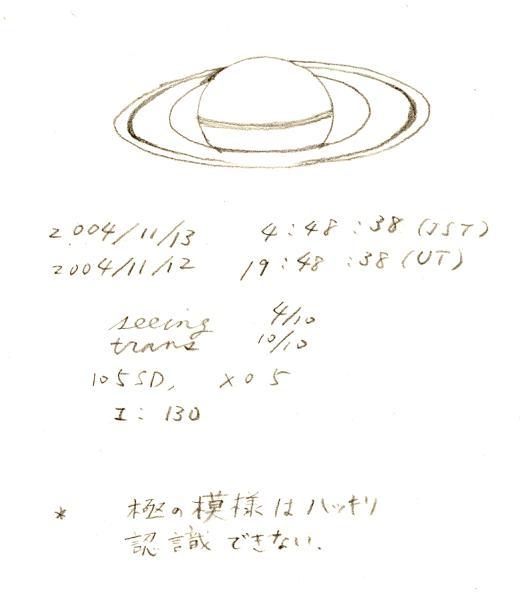 2004/11/13 4:48:38 (JST)
2004/11/12 19:48:38 (UT)
seeing 4/10
trans 10/10
105SD, XO5
I: 130
* 極の模様はハッキリ
認識できない.